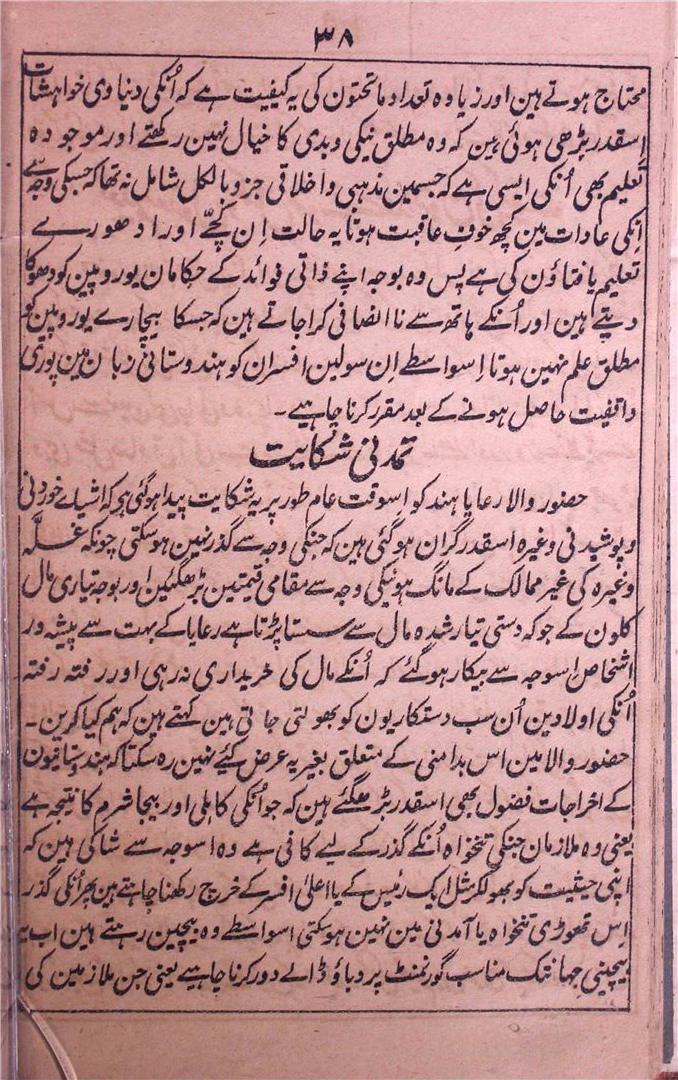 ۳۸
محتاج ہوتے ہین اور زیادہ تعداد ماتحتون کی یہ کیفیت ہے کہ اُنکی دنیاوی خواہشات
اِسقدر بڑھی ہوئی ہین کہ وہ مطلق نیکی وبدی کا خیال نہین رکھتے اور موجودہ
تعلیم بھی اُنکی ایسی ہے کہ جسمین مذہبی واخلاقی جزو بالکل شامل نہ تھا کہ جسکی وجہ سے
اِنکی عادات مین کچھ خوفِ عاقبت ہوتا یہ حالت اِن کچّے اور ادھورے
تعلیم یافتاؤن کی ہے پس وہ بوجہ اپنے ذاتی فوائد کے حکامان یوروپین کو دھوکا
دیتے ہین اور اُنکے ہاتھ سے ناانصافی کراجاتے ہین کہ جسکا بیچارے یوروپین کو
مطلق علم نہین ہوتا اِسواسطے اِن سولین افسران کو ہندوستانی زبان مین پوری
واقفیت حاصل ہونے کے بعد مقرر کرنا چاہیے۔
تمدنی شکایت
حضور والا رعایا ہند کو اِسوقت عام طور پر یہ شکایت پیدا ہوگئی ہی کہ اشیاے خوردنی
وپوشیدنی وغیرہ اسقدر گران ہوگئی ہین کہ جنکی وجہ سے گذر نہین ہوسکتی چونکہ غلّہ
وغیرہ کی غیر ممالک کے مانگ ہونیکی وجہ سے مقامی قیمتین بڑھگئین اور بوجہ تیاری مال
کلون کے جو کہ دستی تیار شدہ مال سے سستا پڑتا ہے رعایا کے بہت سے پیشہ ور
اشخاص اِسوجہ سے بیکار ہوگئے کہ اُنکے مال کی خریداری نہ رہی اور رفتہ رفتہ
اُنکی اولادین اُن سب دستکاریون کو بھولتی جاتی ہین کہتے ہین کہ ہم کیا کرین۔
حضور والا مین اس بدامنی کے متعلق بغیر یہ عرض کئے نہین رہ سکتا کہ ہندوستانیون
کے اخراجات فضول بھی اسقدر بڑھگئے ہین کہ جو اُنکی کاہلی اور بیجا شرم کا نتیجہ ہے
یعنی وہ ملازمان جنکی تنخواہ اُنکے گذر کے لیے کافی ہے وہ اسوجہ سے شاکی ہین کہ
اپنی حیثیت کو بھولکر مثل ایک رئیس کے یا اعلیٰ افسر کے خرچ رکھنا چاہتے ہین پھر اُنکی گذر
اِس تھوڑی تنخواہ یا آمدنی مین نہین ہوسکتی اسواسطے وہ بیچین رہتے ہین اب یہ
بیچینی جہانتک مناسب گورنمنٹ پر دباؤ ڈالے دور کرنا چاہیے یعنی جن ملازمین کی